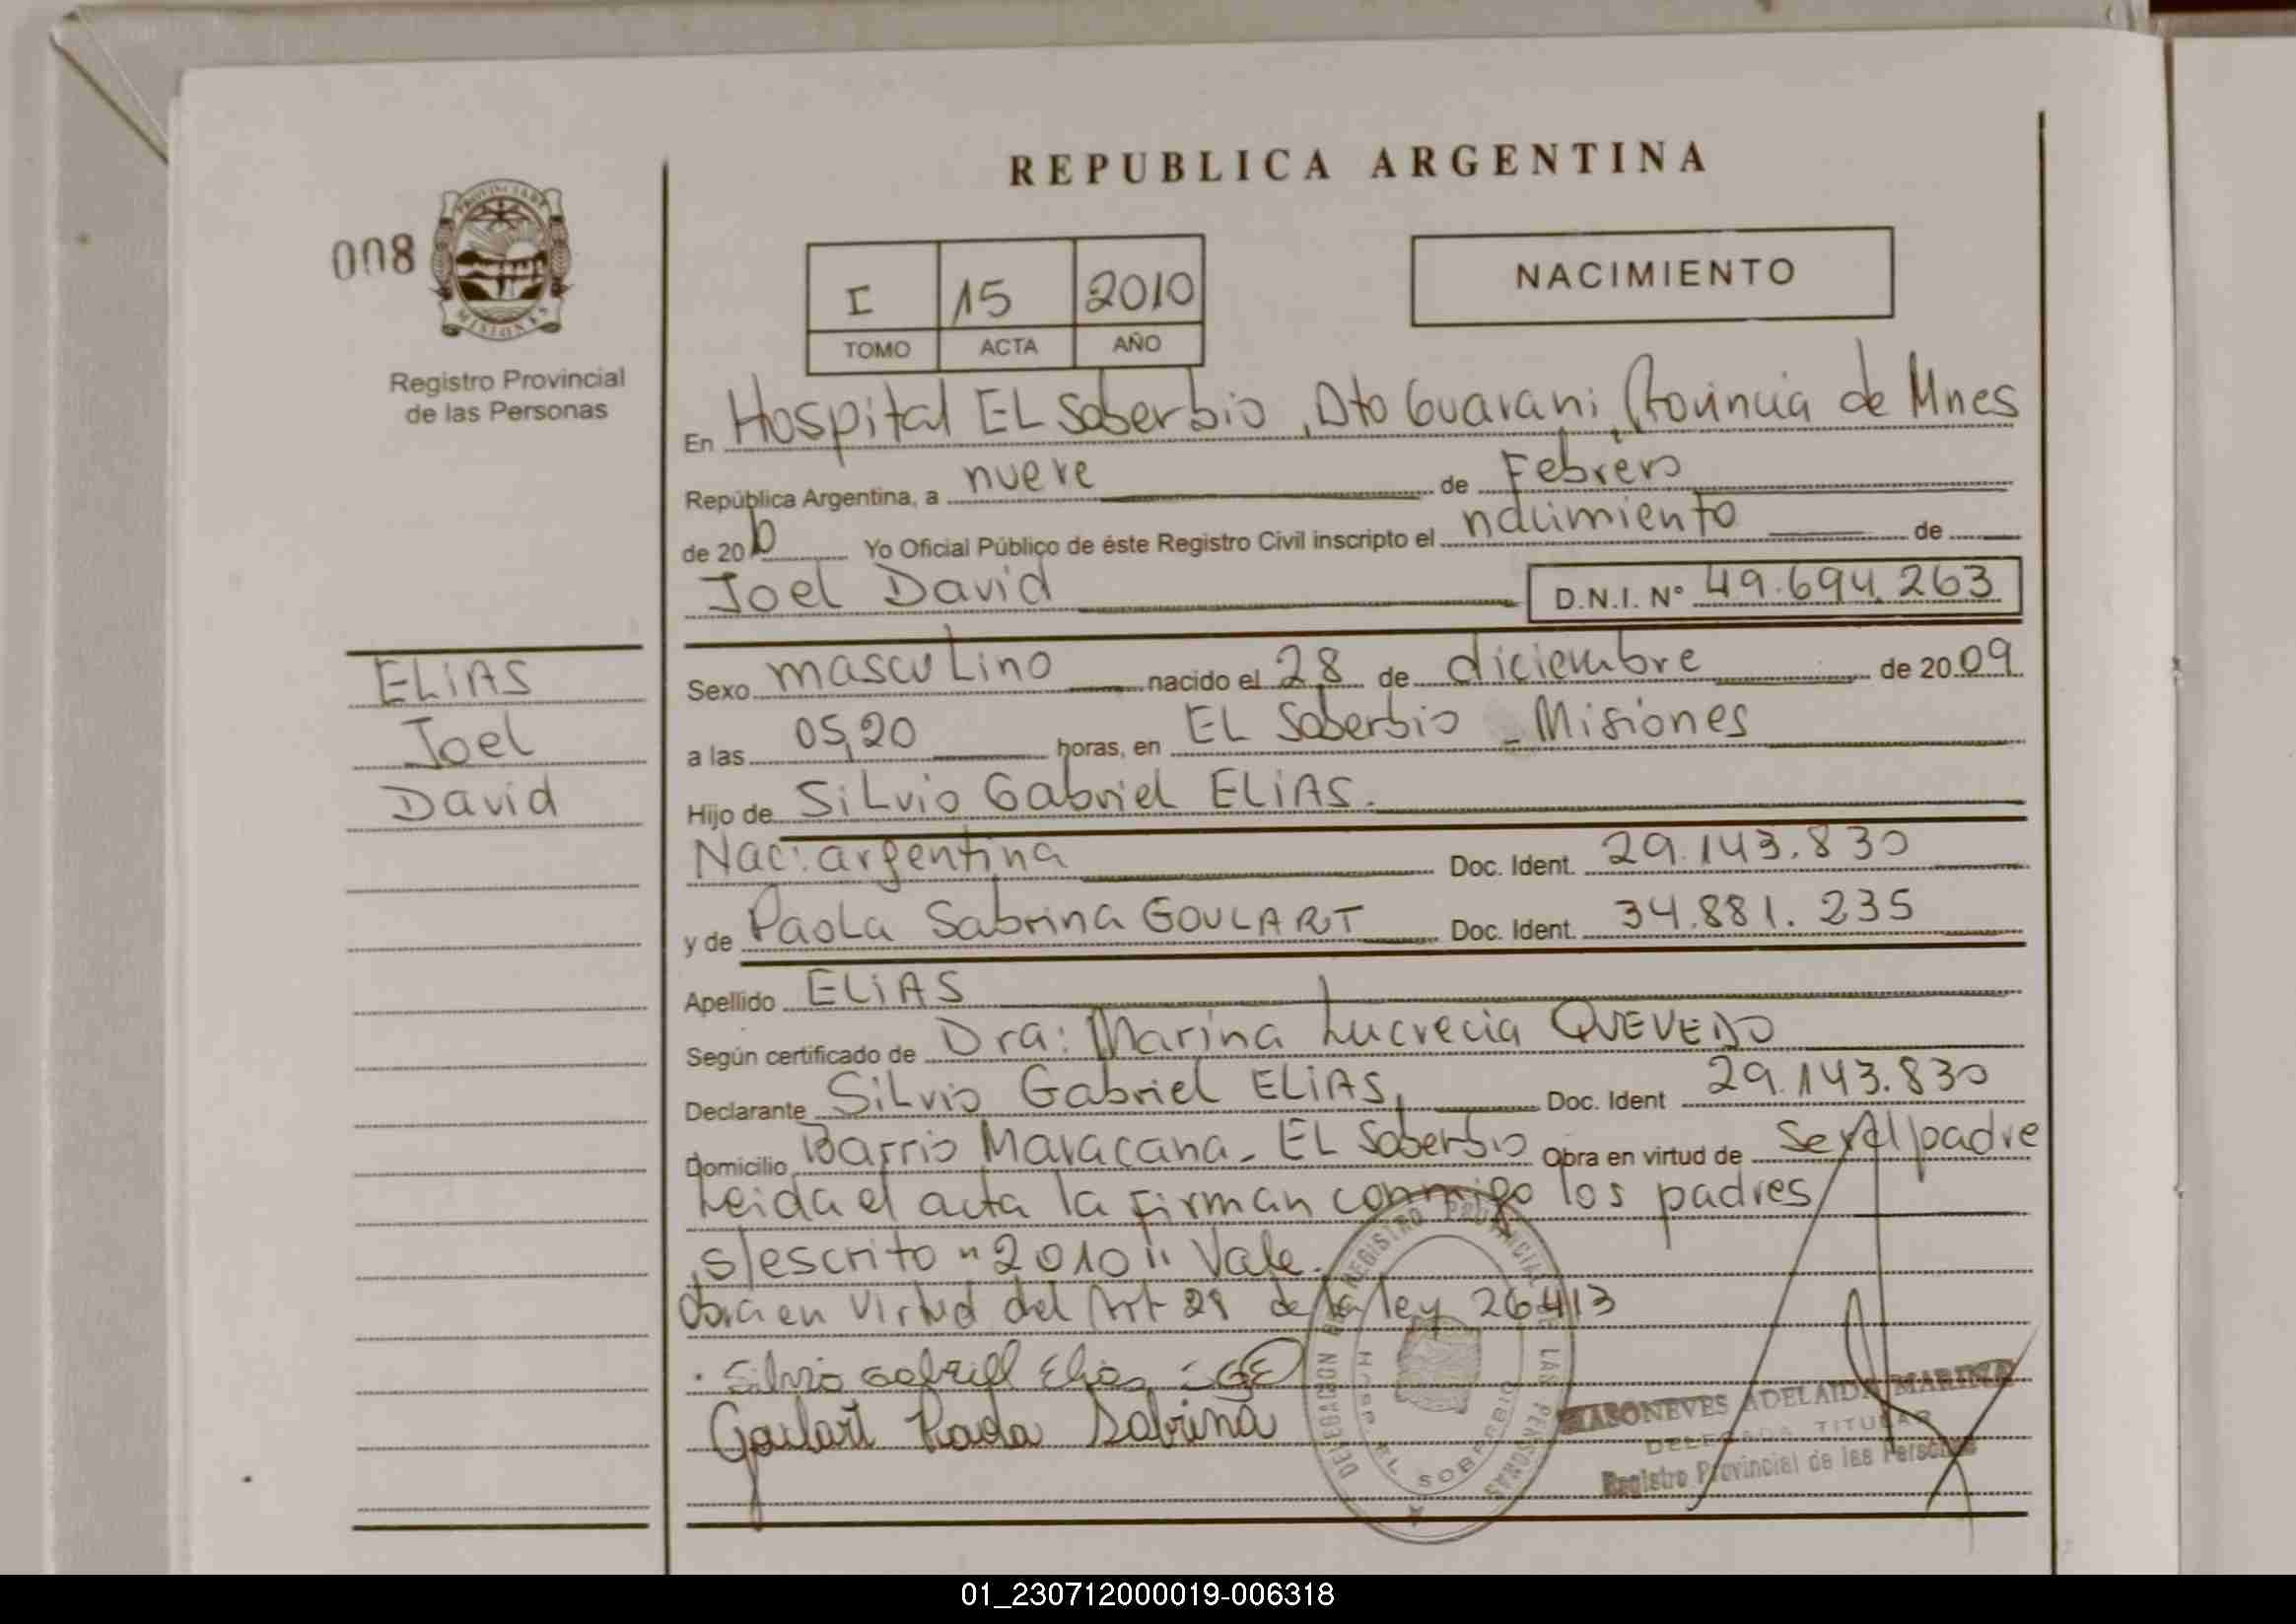 REPUBLICA ARGENTINA
008
PROVINCIA DE
MISIONES
Registro Provincial
de las Personas
I 15 2010
TOMO ACTA AÑO
NACIMIENTO
En Hospital EL Soberbio, Dto Guarani, Provincia de Mnes
República Argentina, a nueve de Febrero
de 2010 Yo Oficial Público de éste Registro Civil inscripto el nacimiento de
Joel David D.N.I. Nº 49.694.263
ELiAS
Joel
David
Sexo masculino nacido el 28 de diciembre de 2009
a las 05,20 horas, en EL Soberbio - Misiones
Hijo de Silvio Gabriel ELiAS.
Nac: argentina Doc. Ident. 29.143.830
y de Paola Sabrina GOULART Doc. Ident. 34.881.235
Apellido ELiAS
Según certificado de Dra: Marina Lucrecia QUEVEDO
Declarante Silvio Gabriel ELiAS, Doc. Ident 29.143.830
Domicilio Barrio Maracana - EL Soberbio Obra en virtud de Ser el padre
Leida el acta la firman conmigo los padres
s/escrito "2010" Vale.
Obra en virtud del Art 29 de la ley 26413
Silvio Gabriel Elias
Goulart Paola Sabrina
DELEGACION DEL REGISTRO PROVINCIAL DE LAS PERSONAS
HOSP. EL SOBERBIO
MASONEVES ADELAIDA MARINA
DELEGADA TITULAR
Registro Provincial de las Personas
01_230712000019-006318